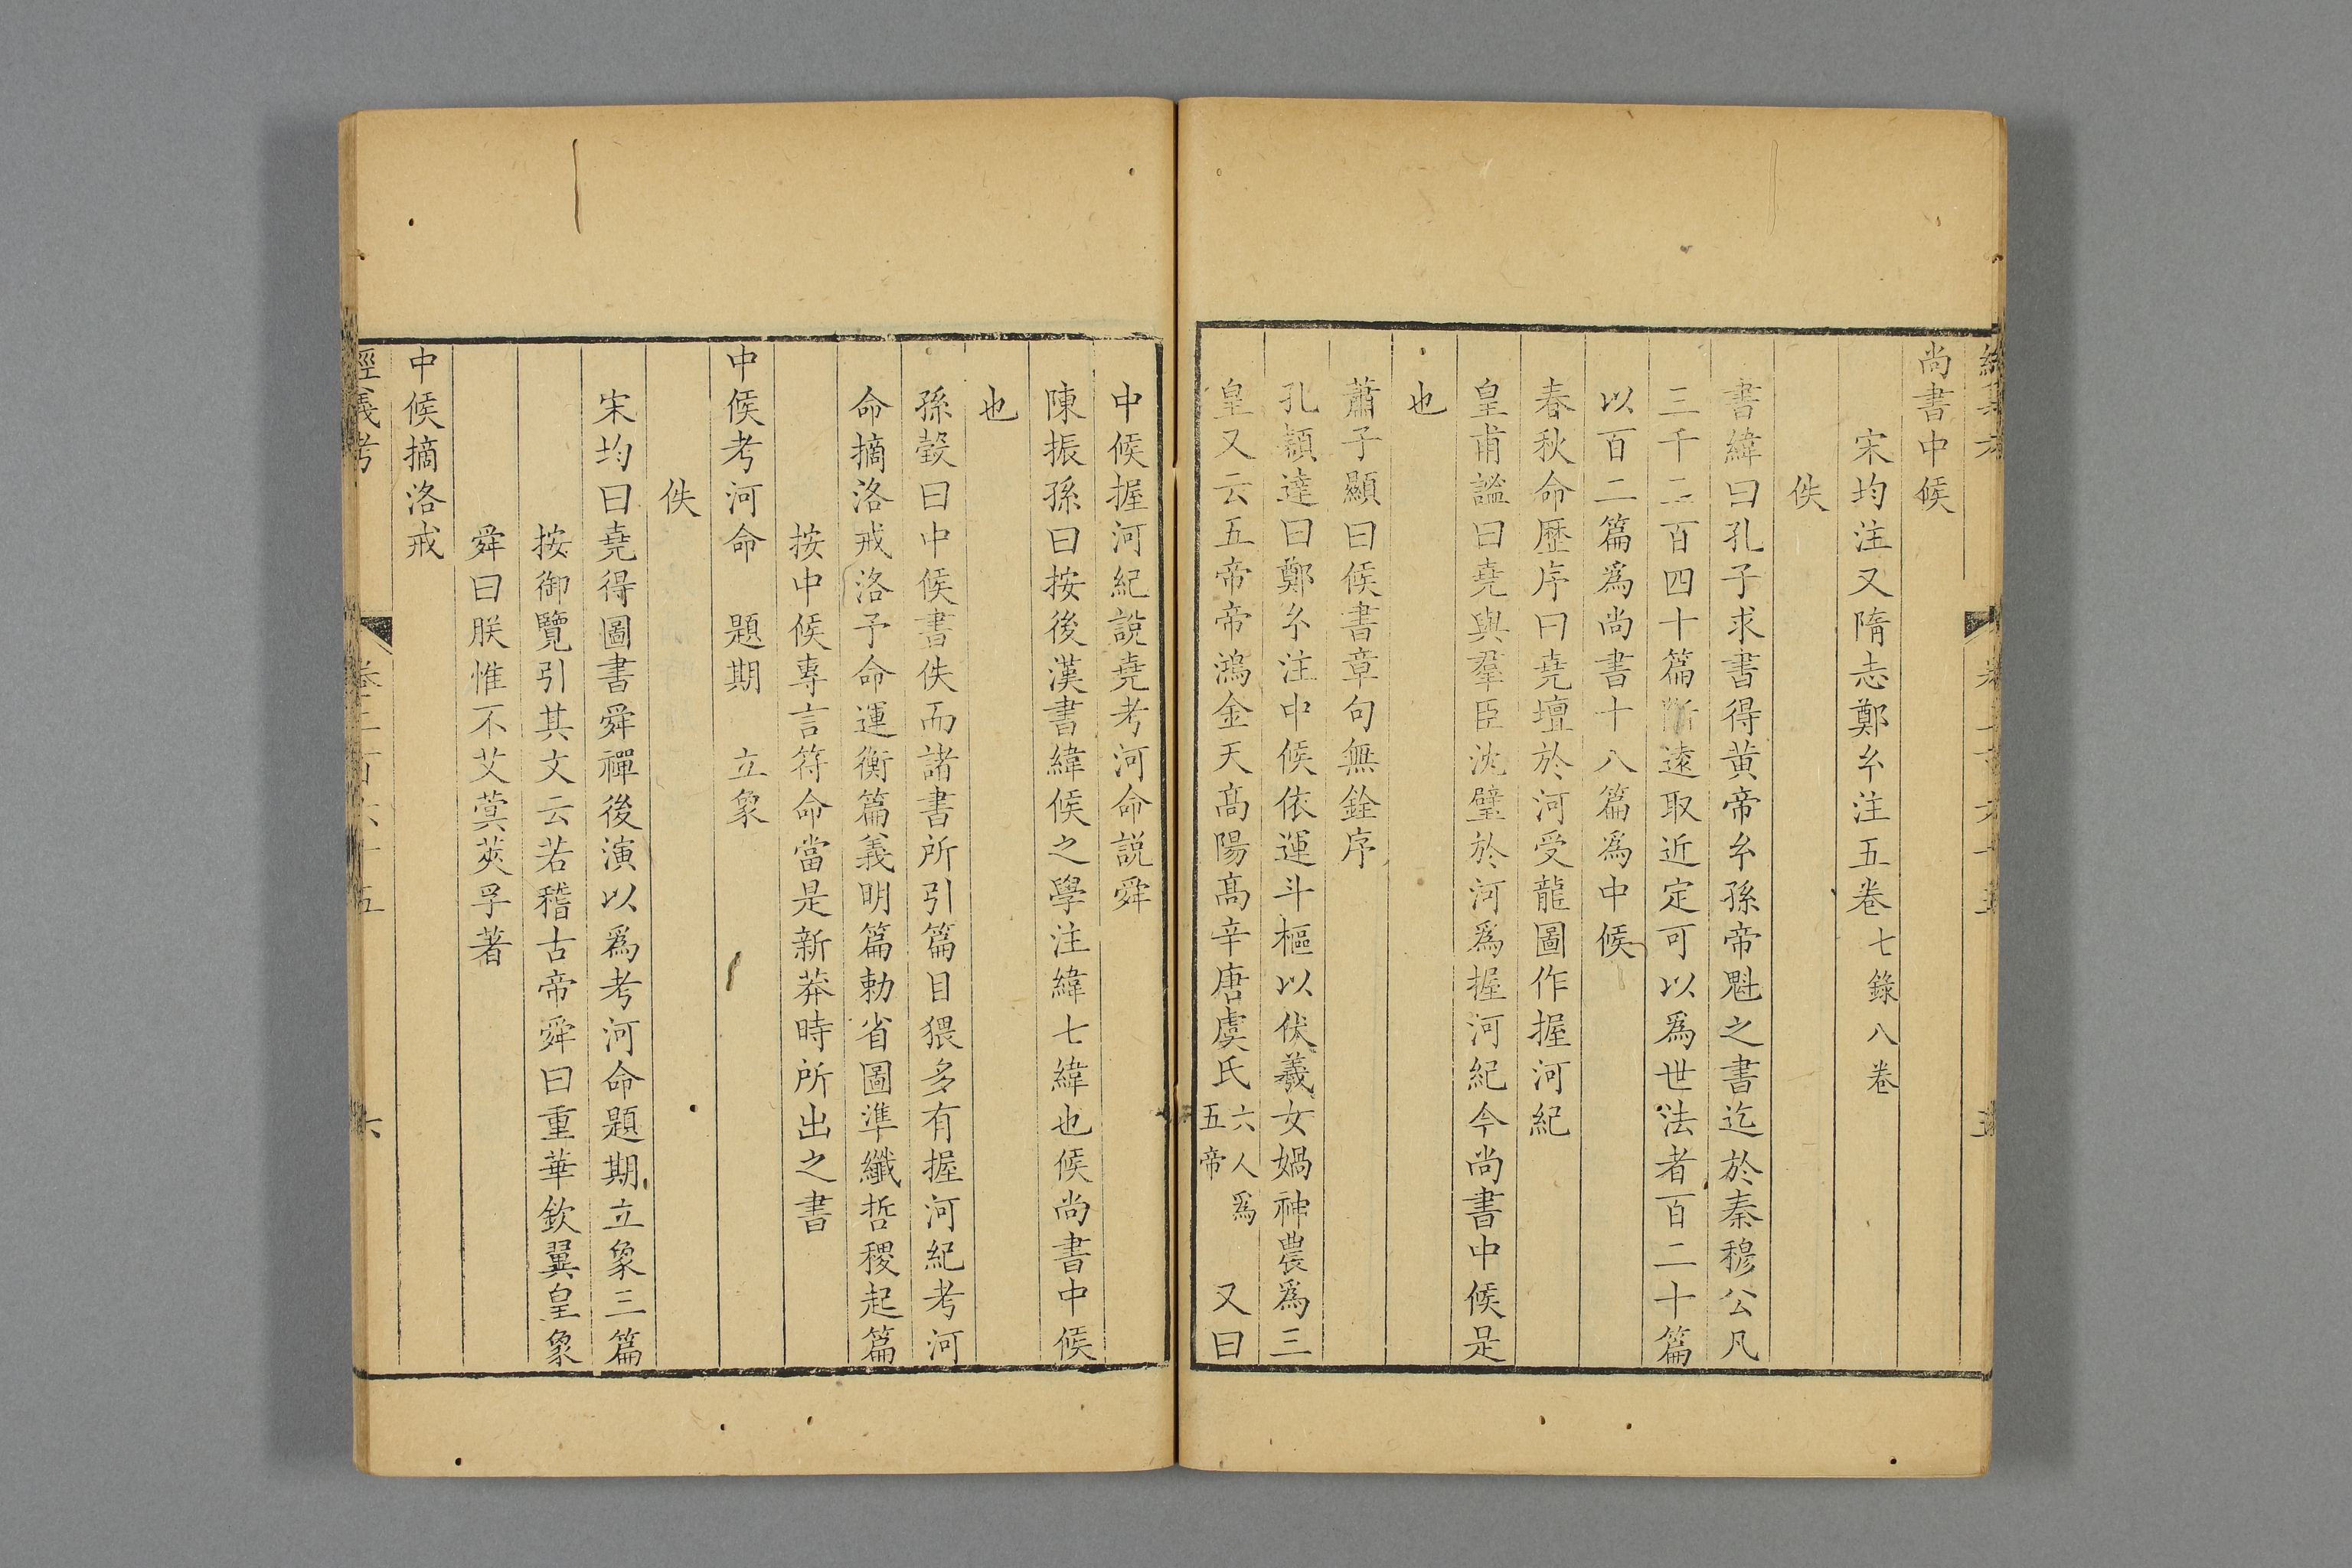 尚書中候
宋均注又隋志鄭𤣥注五卷七錄八卷
佚
書緯曰孔子求書得黄帝𤣥孫帝魁之書迄於秦穆公凡
三千二百四十篇斷遠取近定可以爲世法者百二十篇
以百二篇爲尚書十八篇爲中候
春秋命歷序曰堯壇於河受龍圖作握河紀
皇甫謐曰堯與羣臣沈璧於河爲握河紀今尚書中候是
也
蕭子顯曰候書章句無銓序
孔穎達曰鄭𤣥注中候依運斗樞以伏羲女媧神農爲三
皇又云五帝帝鴻金天髙陽髙辛唐虞氏六人爲五帝又曰
中候握河紀說堯考河命説舜
陳振孫曰按後漢書緯候之學注緯七緯也候尚書中候
也
孫瑴曰中候書佚而諸書所引篇目猥多有握河紀考河
命摘洛戒洛予命運衡篇義明篇勅省圖準纖哲稷起篇
按中候專言符命當是新莽時所出之書
中候考河命 題期 立象
佚
宋均曰堯得圖書舜禪後演以爲考河命題期立象三篇
按御覽引其文云若稽古帝舜曰重華欽翼皇象
舜曰朕惟不艾蓂莢孚著
中候摘洛戒
經義考 卷二百六十五 六